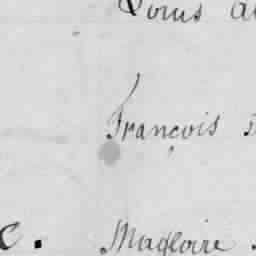 Louis
François
c. Magloire